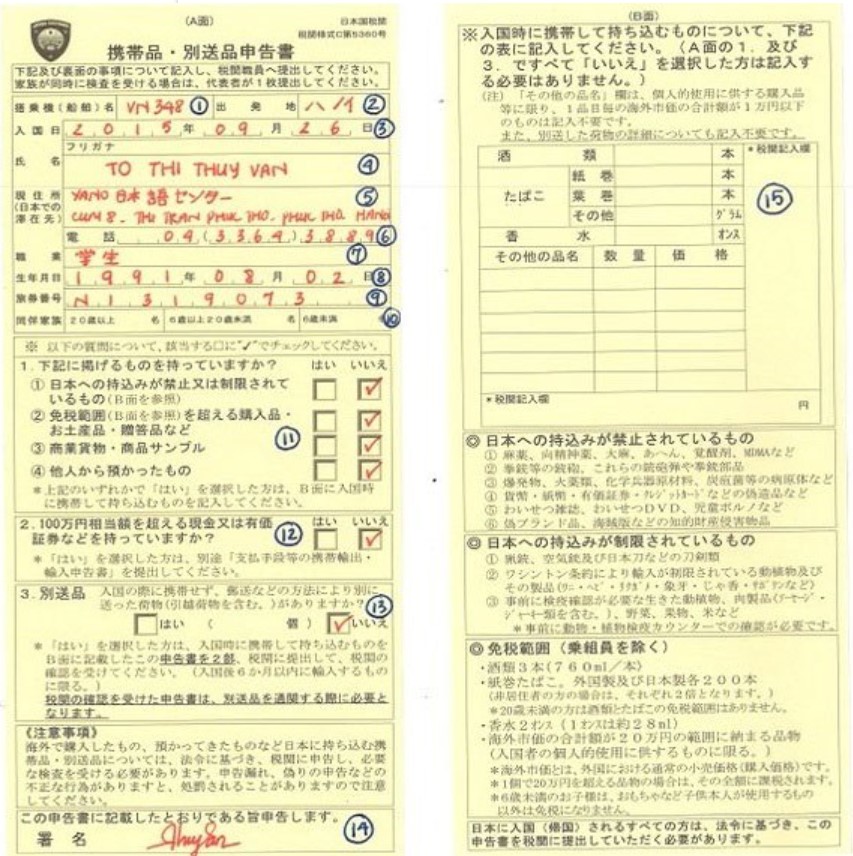 (A面)
日本国税関
税関様式C第5360号
携帯品・別送品申告書
下記及び裏面の事項について記入し、税関職員へ提出してください。
家族が同時に検査を受ける場合は、代表者が1枚提出してください。
搭乗機(船舶)名 VN348 ① 出発地 ハノイ ②
入国日 2015年09月26日 ③
フリガナ
氏名 TO THI THUY VAN ④
現住所 YANO日本語センター ⑤
(日本での
滞在先) CUM 8. THI TRAN PHUC THO. PHUC THO. HANOI
電話 04(3364)3889 ⑥
職業 学生 ⑦
生年月日 1991年08月02日 ⑧
旅券番号 N1319073 ⑨
同伴家族 20歳以上 名 6歳以上20歳未満 名 6歳未満 名 ⑩
※ 以下の質問について、該当する□に"✓"でチェックしてください。
1.下記に掲げるものを持っていますか? はい いいえ
① 日本への持込みが禁止又は制限されて
いるもの(B面を参照)
② 免税範囲(B面を参照)を超える購入品・
お土産品・贈答品など
⑪
③ 商業貨物・商品サンプル
④ 他人から預かったもの
*上記のいずれかで「はい」を選択した方は、B面に入国時
に携帯して持ち込むものを記入してください。
2.100万円相当額を超える現金又は有価
証券などを持っていますか? ⑫ はい いいえ
*「はい」を選択した方は、別途「支払手段等の携帯輸出・
輸入申告書」を提出してください。
3.別送品 入国の際に携帯せず、郵送などの方法により別に
送った荷物(引越荷物を含む。)がありますか? ⑬
□はい ( 個) ☑いいえ
*「はい」を選択した方は、入国時に携帯して持ち込むものを
B面に記載したこの申告書を2部、税関に提出して、税関の
確認を受けてください。(入国後6か月以内に輸入するもの
に限る。)
税関の確認を受けた申告書は、別送品を通関する際に必要と
なります。
《注意事項》
海外で購入したもの、預かってきたものなど日本に持ち込む携
帯品・別送品については、法令に基づき、税関に申告し、必要
な検査を受ける必要があります。申告漏れ、偽りの申告などの
不正な行為がありますと、処罰されることがありますので注意
してください。
この申告書に記載したとおりである旨申告します。
署名 ⑭
(B面)
※入国時に携帯して持ち込むものについて、下記
の表に記入してください。(A面の1.及び
3.ですべて「いいえ」を選択した方は記入す
る必要はありません。)
(注) 「その他の品名」欄は、個人的使用に供する購入品
等に限り、1品目毎の海外市価の合計額が1万円以下
のものは記入不要です。
また、別送した荷物の詳細についても記入不要です。
酒類 本 *税関記入欄
紙巻 本
たばこ 葉巻 本 ⑮
その他 グラム
香水 オンス
その他の品名 数量 価格
*税関記入欄
円
◎ 日本への持込みが禁止されているもの
① 麻薬、向精神薬、大麻、あへん、覚醒剤、MDMAなど
② 拳銃等の銃砲、これらの銃砲弾や拳銃部品
③ 爆発物、火薬類、化学兵器原材料、炭疽菌等の病原体など
④ 貨幣・紙幣・有価証券・クレジットカードなどの偽造品など
⑤ わいせつ雑誌、わいせつDVD、児童ポルノなど
⑥ 偽ブランド品、海賊版などの知的財産侵害物品
◎ 日本への持込みが制限されているもの
① 猟銃、空気銃及び日本刀などの刀剣類
② ワシントン条約により輸入が制限されている動植物及び
その製品(ワニ・ヘビ・リクガメ・象牙・じゃ香・サボテンなど)
③ 事前に検疫確認が必要な生きた動植物、肉製品(ソーセージ・
ジャーキー類を含む。)、野菜、果物、米など
*事前に動物・植物検疫カウンターでの確認が必要です。
◎ 免税範囲(乗組員を除く)
・酒類3本(760ml/本)
・紙巻たばこ。外国製及び日本製各200本
(非居住者の方の場合は、それぞれ2倍となります。)
*20歳未満の方は酒類とたばこの免税範囲はありません。
・香水2オンス(1オンスは約28ml)
・海外市価の合計額が20万円の範囲に納まる品物
(入国者の個人的使用に供するものに限る。)
*海外市価とは、外国における通常の小売価格(購入価格)です。
*1個で20万円を超える品物の場合は、その全額に課税されます。
*6歳未満のお子様は、おもちゃなど子供本人が使用するもの
以外は免税になりません。
日本に入国(帰国)されるすべての方は、法令に基づき、この
申告書を税関に提出していただく必要があります。